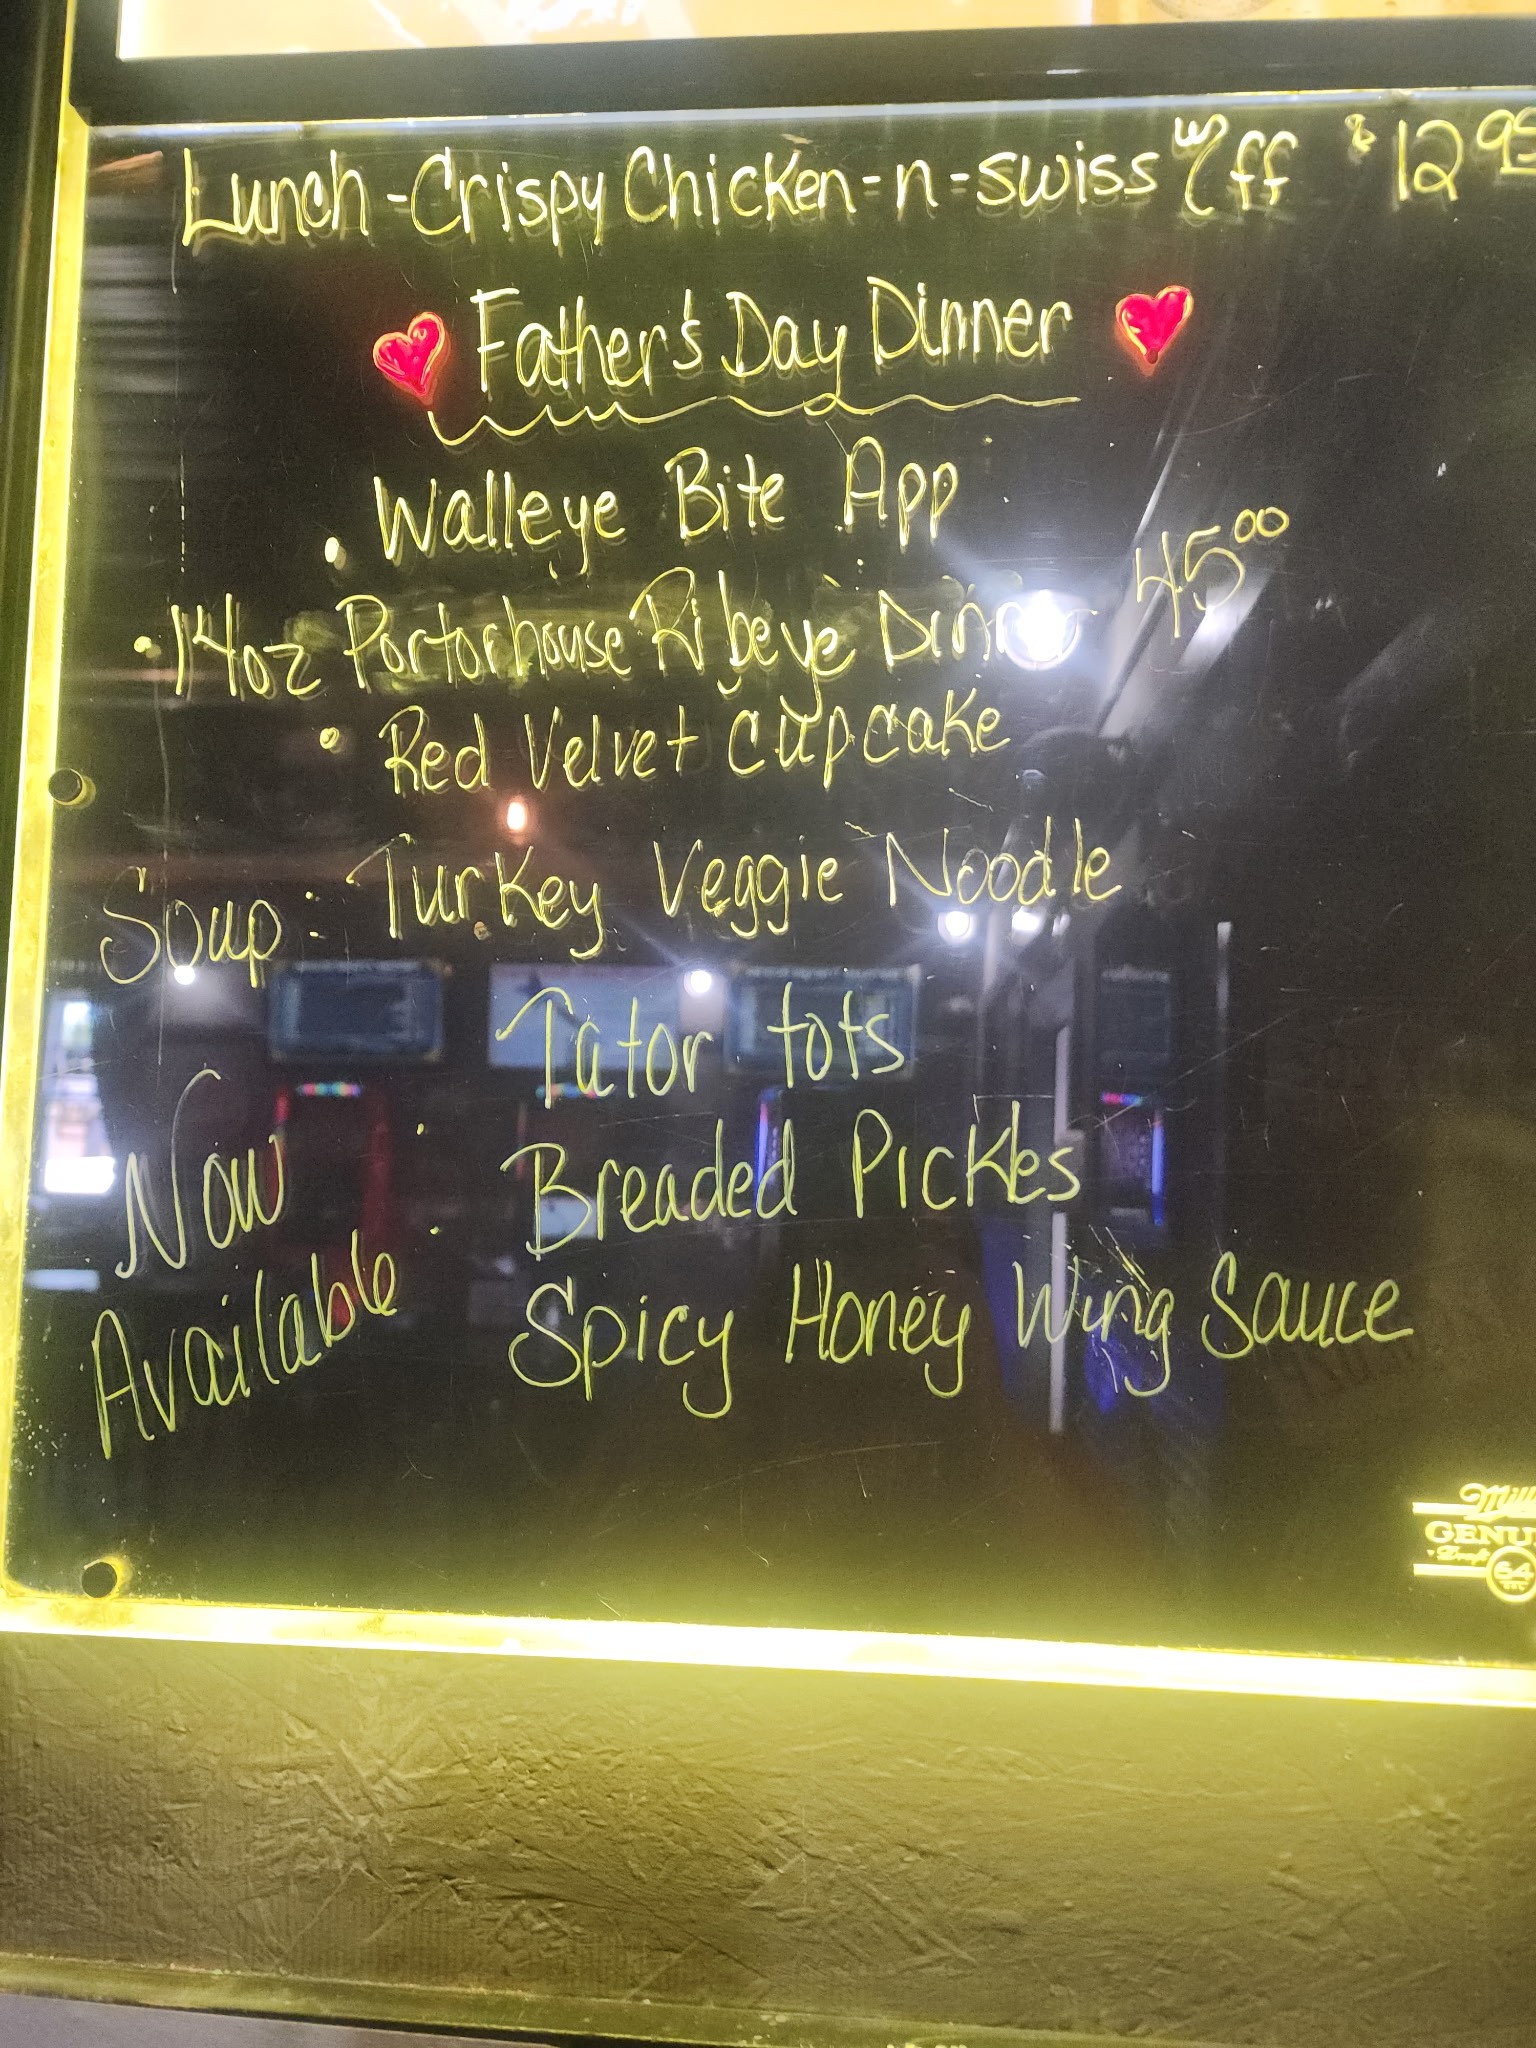 Lunch - Crispy Chicken-n-swiss w/ ff $12.95
Father's Day Dinner
• Walleye Bite App
• 14oz Portorhouse Ribeye Dinner 45.00
• Red Velvet Cupcake
Soup: Turkey Veggie Noodle
Now Available:
Tator tots
Breaded Pickles
Spicy Honey Wing Sauce
GENU
Draft
64